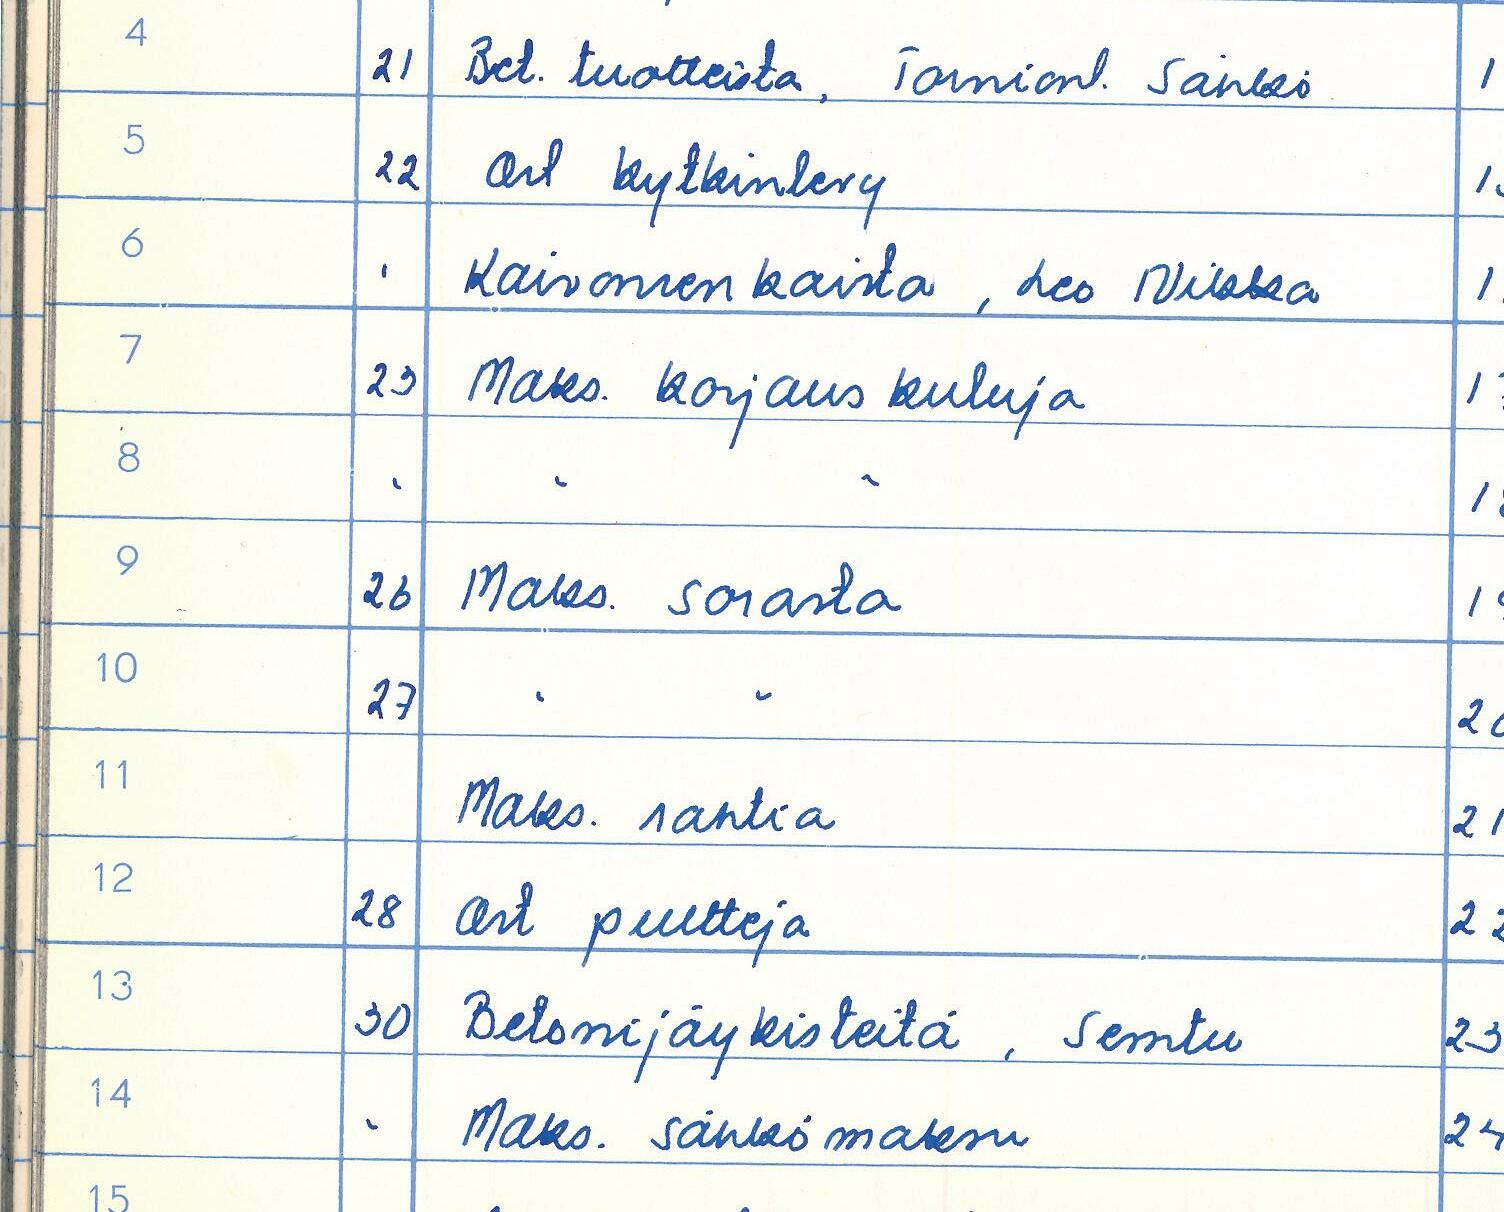 4 21 Bet. tuotteista, Tornionl. Sähkö 1
5 22 Ost kytkinlevy 1
6 " Kaivonrenkaista, Leo Nikka 1
7 23 Maks. korjauskuluja 17
8 " " " 18
9 26 Maks. sorasta 19
10 27 " " 20
11 Maks. rahtia 21
12 28 Ost pultteja 22
13 30 Betonijäykisteitä, Semtu 23
14 " Maks. sähkömaksu 24
15